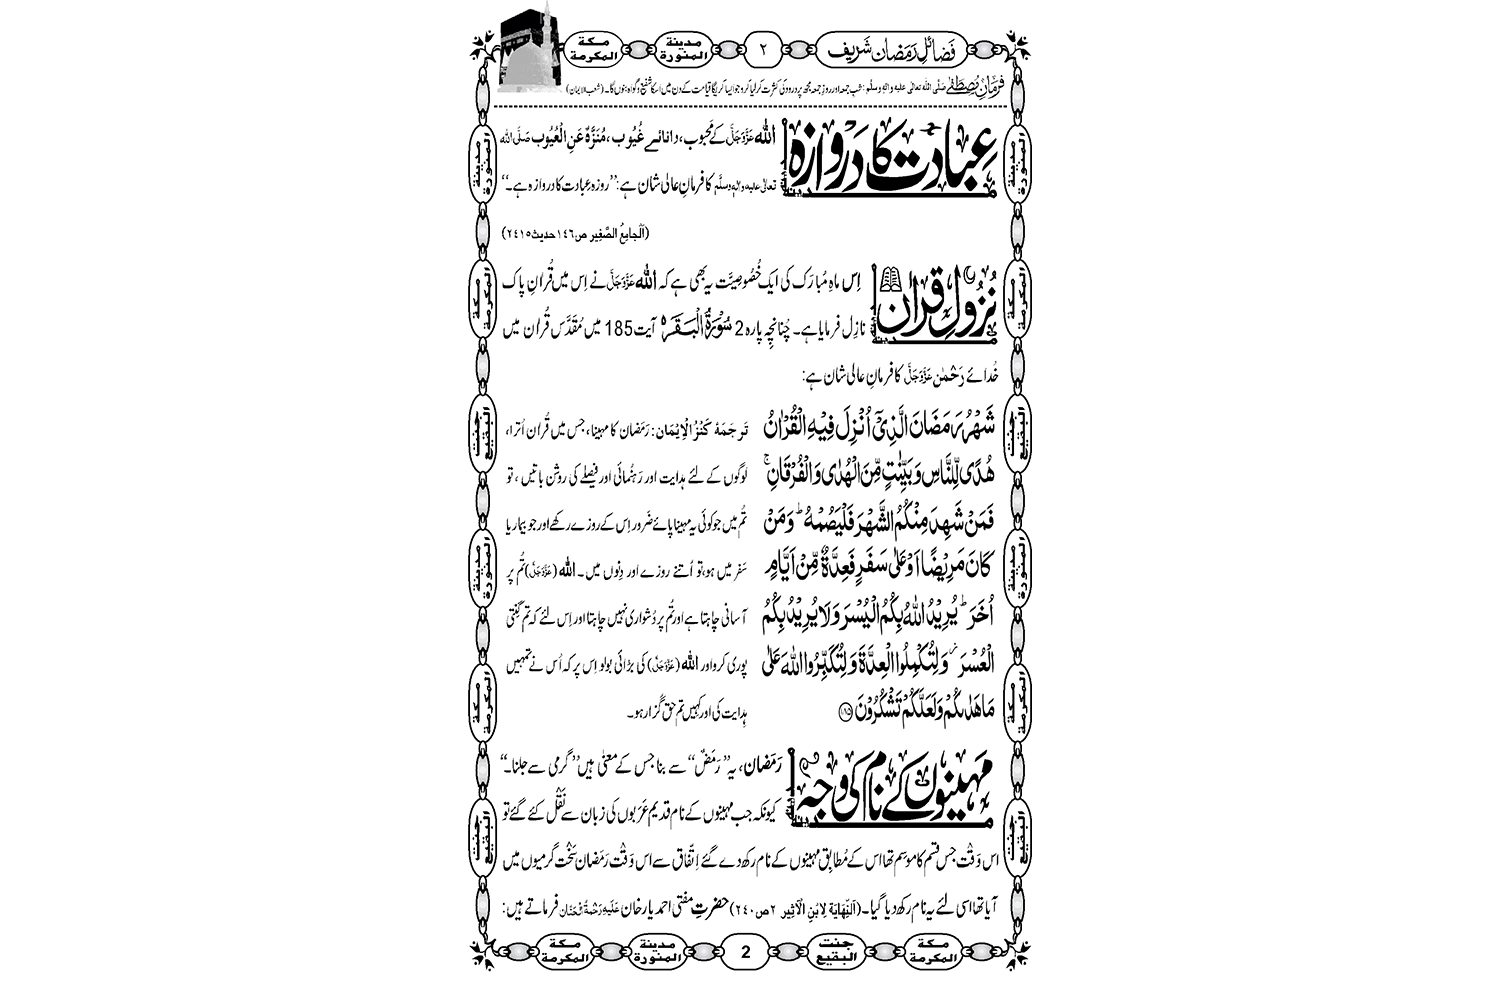 فضائلِ رَمَضان شریف
۲
مدینة المنورة
مكة المكرمة
فرمانِ مصطَفٰے صَلَّی اللہ تعالٰی علیہ واٰلہٖ وسلَّم : شبِ جمعہ اور روزِ جمعہ مجھ پر درود کی کثرت کر لیا کرو جو ایسا کریگا قیامت کے دن میں اسکا شفیع و گواہ بنوں گا۔ (شعب الایمان)
عِبادت کا دروازہ
اللہ عَزَّوَجَلَّ کے مَحبوب، دانائے غُیُوب، مُنَزَّہٌ عَنِ الْعُیُوب صَلَّی اللہ
تعالٰی علیہ واٰلہٖ وسلَّم کا فرمانِ عالی شان ہے: ’’روزہ عِبادت کا دروازہ ہے۔‘‘
(اَلْجامِعُ الصَّغِیر ص۱٤٦ حدیث ۲٤۱٥)
نُزُولِ قراٰن
اِس ماہِ مُبارَک کی ایک خُصُوصِیَّت یہ بھی ہے کہ اللہ عَزَّوَجَلَّ نے اِس میں قُراٰنِ پاک
نازِل فرمایا ہے۔ چُنانچِہ پارہ 2 سُوْرَۃُ الْبَقَرَہ آیت 185 میں مُقَدَّس قُراٰن میں
خُدائے رَحْمٰن عَزَّوَجَلَّ کا فرمانِ عالی شان ہے:
شَهْرُ رَمَضَانَ الَّذِیْۤ اُنْزِلَ فِیْهِ الْقُرْاٰنُ
هُدًی لِّلنَّاسِ وَ بَیِّنٰتٍ مِّنَ الْهُدٰی وَ الْفُرْقَانِۚ
فَمَنْ شَهِدَ مِنْكُمُ الشَّهْرَ فَلْیَصُمْهُؕ وَ مَنْ
كَانَ مَرِیْضًا اَوْ عَلٰی سَفَرٍ فَعِدَّةٌ مِّنْ اَیَّامٍ
اُخَرَؕ یُرِیْدُ اللّٰهُ بِكُمُ الْیُسْرَ وَ لَا یُرِیْدُ بِكُمُ
الْعُسْرَ٘ وَ لِتُكْمِلُوا الْعِدَّةَ وَ لِتُكَبِّرُوا اللّٰهَ عَلٰی
مَا هَدٰىكُمْ وَ لَعَلَّكُمْ تَشْكُرُوْنَ ﴿۱۸۵﴾
تَرجَمَۂ کنزُ الْاِیْمَان: رَمَضان کا مہینا، جس میں قُراٰن اُترا،
لوگوں کے لئے ہدایت اور رَہنُمائی اور فیصلے کی روشن باتیں، تو
تُم میں جو کوئی یہ مہینا پائے ضَرور اِس کے روزے رکھے اور جو بیمار یا
سَفر میں ہو، تو اُتنے روزے اور دِنوں میں۔ اللہ (عَزَّوَجَلَّ) تُم پر
آسانی چاہتا ہے اور تُم پر دُشواری نہیں چاہتا اور اِس لئے کہ تم گِنتی
پوری کرو اور اللہ (عَزَّوَجَلَّ) کی بڑائی بولو اِس پر کہ اُس نے تمہیں
ہِدایت کی اور کہیں تم حق گُزار ہو۔
مہینوں کے نام کی وجہ
رَمَضان، یہ ’’رَمَضٌ‘‘ سے بنا جس کے معنٰی ہیں ’’گرمی سے جلنا۔‘‘
کیونکہ جب مہینوں کے نام قدیم عَرَبوں کی زبان سے نَقْل کئے گئے تو
اس وَقْت جس قسم کا موسِم تھا اس کے مُطابِق مہینوں کے نام رکھ دے گئے اِتِّفاق سے اس وَقْت رَمَضان سَخْت گرمیوں میں
آیا تھا اسی لئے یہ نام رکھ دیا گیا۔ (اَلنِّهَایَة لِابنِ الْاَثِیر ۲ ص ۲٤۰) حضرتِ مفتی احمد یار خان عَلَیْہِ رَحْمَۃُ الْحَنَّان فرماتے ہیں:
مدینة المنورة
مكة المكرمة
جنت البقیع
مدینة المنورة
مكة المكرمة
جنت البقیع
مدینة المنورة
مكة المكرمة
جنت البقیع
مدینة المنورة
مكة المكرمة
جنت البقیع
مكة المكرمة
جنت البقیع
2
مدینة المنورة
مكة المكرمة